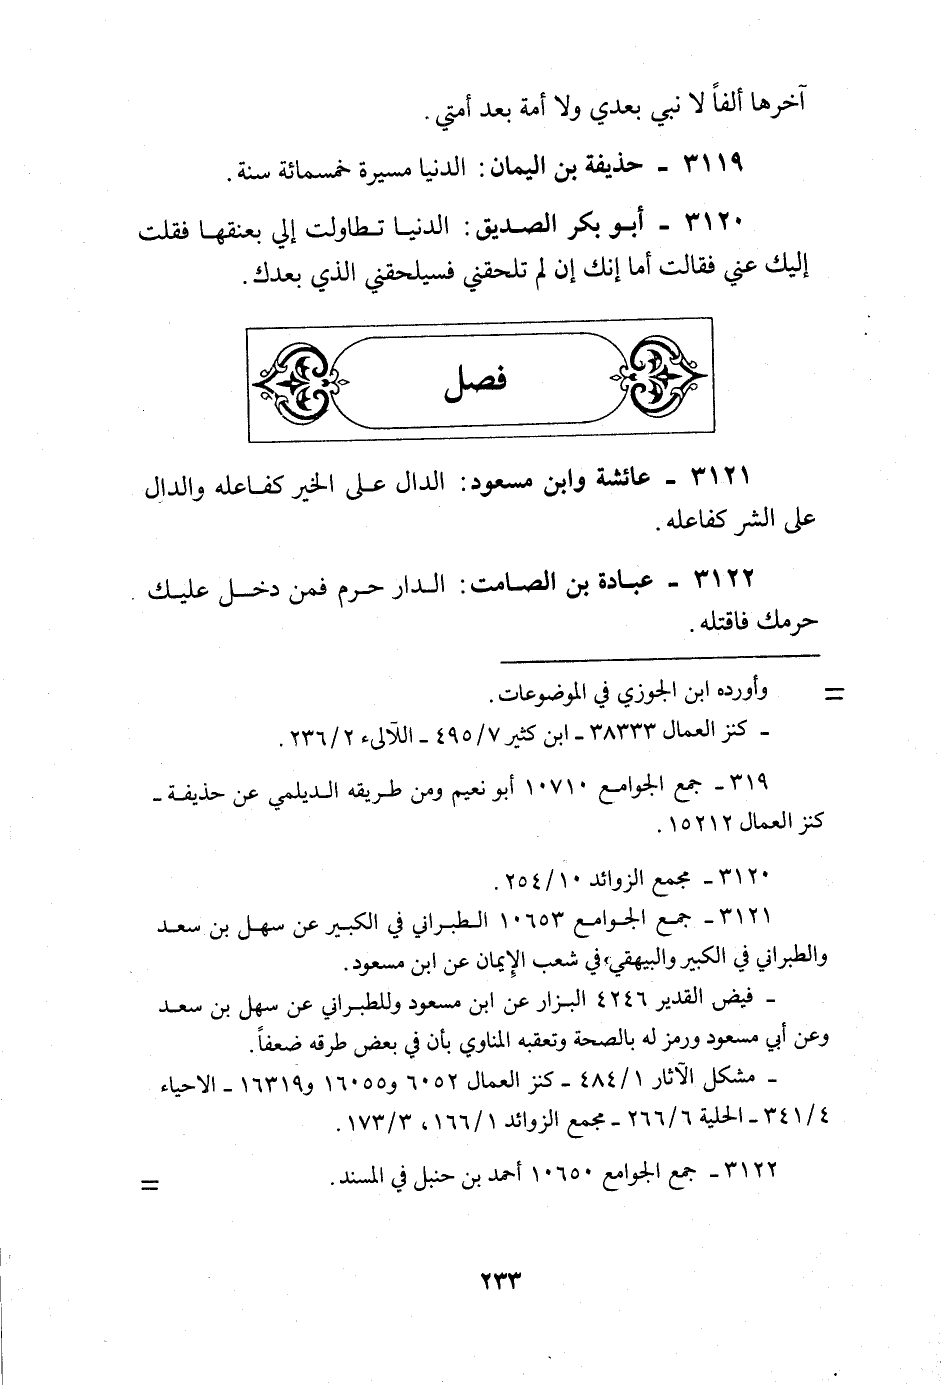 آخرها ألفاً لا نبي بعدي ولا أمة بعد أمتي .
٣١١٩ ـ حذيفة بن اليمان : الدنيا مسيرة خمسمائة سنة .
٣١٢٠ ـ أبو بكر الصديق : الدنيا تطاولت إلي بعنقها فقلت
إليك عني فقالت أما إنك إن لم تلحقني فسيلحقني الذي بعدك .
فصل
٣١٢١ ـ عائشة وابن مسعود : الدال على الخير كفاعله والدال
على الشر كفاعله .
٣١٢٢ ـ عبادة بن الصامت : الدار حرم فمن دخل عليك
حرمك فاقتله .
= وأورده ابن الجوزي في الموضوعات .
ـ كنز العمال ٣٨٣٣٣ ـ ابن كثير ٤٩٥/٧ ـ اللآلىء ٢٣٦/٢ .
٣١٩ ـ جمع الجوامع ١٠٧١٠ أبو نعيم ومن طريقه الديلمي عن حذيفة ـ
كنز العمال ١٥٢١٢ .
٣١٢٠ ـ مجمع الزوائد ٢٥٤/١٠ .
٣١٢١ ـ جمع الجوامع ١٠٦٥٣ الطبراني في الكبير عن سهل بن سعد
والطبراني في الكبير والبيهقي في شعب الإيمان عن ابن مسعود .
ـ فيض القدير ٤٢٤٦ البزار عن ابن مسعود وللطبراني عن سهل بن سعد
وعن أبي مسعود ورمز له بالصحة وتعقبه المناوي بأن في بعض طرقه ضعفاً .
ـ مشكل الآثار ٤٨٤/١ ـ كنز العمال ٦٠٥٢ و١٦٠٥٥ و١٦٣١٩ ـ الاحياء
٣٤١/٤ ـ الحلية ٢٦٦/٦ ـ مجمع الزوائد ١٦٦/١ ، ١٧٣/٣ .
٣١٢٢ ـ جمع الجوامع ١٠٦٥٠ أحمد بن حنبل في المسند . =
٢٣٣